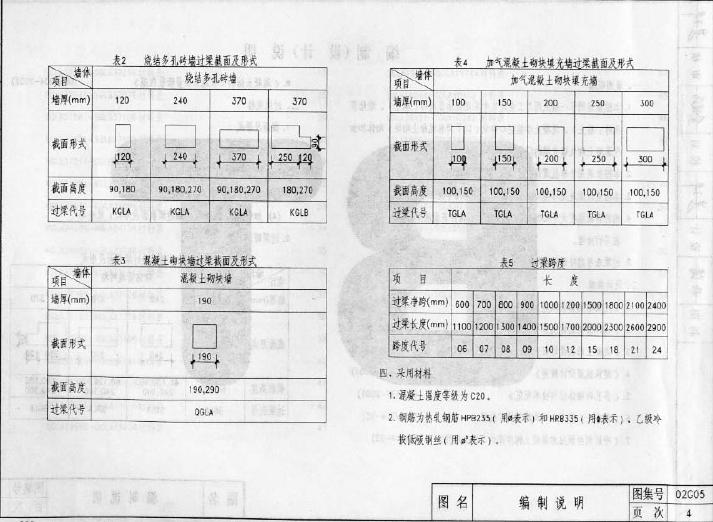 表2 烧结多孔砖墙过梁截面及形式
墙体
项目
烧结多孔砖墙
墙厚(mm) 120 240 370 370
截面形式
90
120 240 370 250 120
截面高度 90,180 90,180,270 90,180,270 180,270
过梁代号 KGLA KGLA KGLA KGLB
表3 混凝土砌块墙过梁截面及形式
墙体
项目
混凝土砌块墙
墙厚(mm) 190
截面形式
190
截面高度 190,290
过梁代号 QGLA
表4 加气混凝土砌块填充墙过梁截面及形式
墙体
项目
加气混凝土砌块填充墙
墙厚(mm) 100 150 200 250 300
截面形式
100 150 200 250 300
截面高度 100,150 100,150 100,150 100,150 100,150
过梁代号 TGLA TGLA TGLA TGLA TGLA
表5 过梁跨度
项 目 长 度
过梁净跨(mm) 600 700 800 900 1000 1200 1500 1800 2100 2400
过梁长度(mm) 1100 1200 1300 1400 1500 1700 2000 2300 2600 2900
跨度代号 06 07 08 09 10 12 15 18 21 24
四、采用材料
1.混凝土强度等级为C20。
2.钢筋为热轧钢筋HPB235(用ø表示)和HRB335(用ø表示)、乙级冷
拔低碳钢丝(用øᵇ表示)。
图 名 编 制 说 明 图集号 02G05
页 次 4